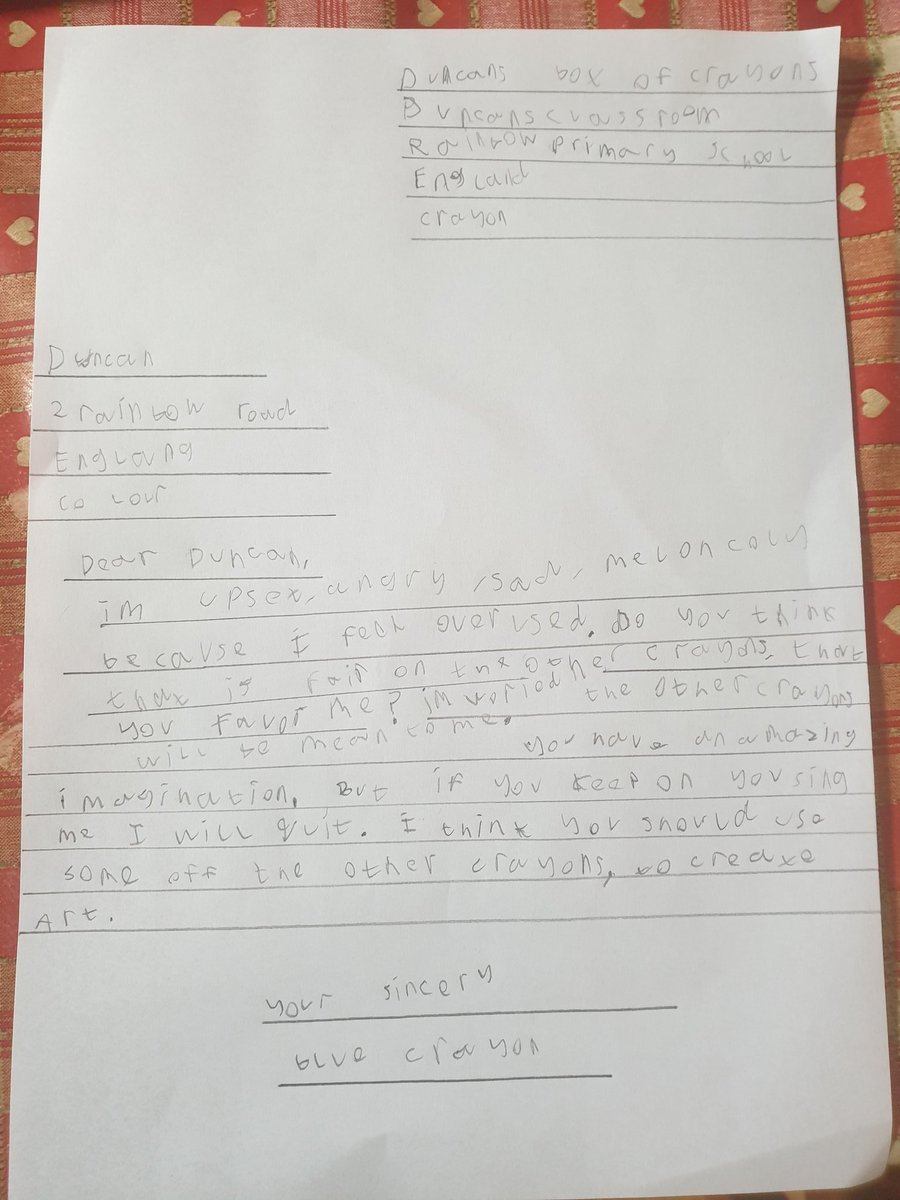 Duncans box of crayons
Duncans crassroom
Rainbow primary school
England
crayon
Duncan
2 rainbow road
Englang
colour
Dear Duncan,
im upset, angry, sad, meloncoly
because I feal over used. Do you think
that is fair on the other crayons, that
you favor me? im woried the other crayons
will be mean to me.
you have an amazing
imagination. But if you keep on yousing
me I will quit. I think you should use
some off the other crayons, to create
Art.
your sincery
blue crayon